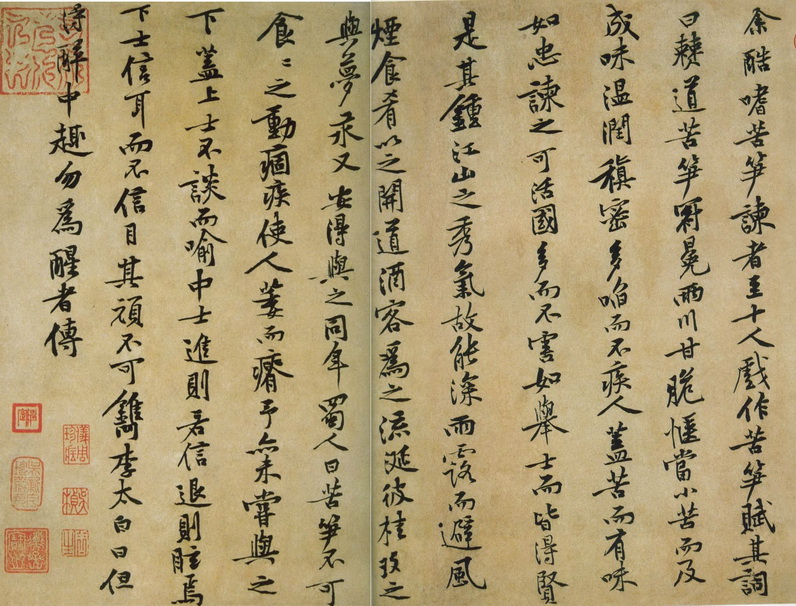 余酷嗜苦笋諫者至十人戲作苦笋賦其詞
曰僰道苦笋冠冕兩川甘脆愜當小苦而及
成味温潤稹密多啗而不疾人蓋苦而有味
如忠諫之可活國多而不害如舉士而皆得賢
是其鍾江山之秀氣故能深雨露而避風
煙食肴以之開道酒客為之流涎彼桂玫之
與夢永又安得與之同年蜀人曰苦笋不可
食〻之動痼疾使人萎而瘠予亦未嘗與之
下蓋上士不談而喻中士進則若信退則眩焉
下士信耳而不信目其頑不可鐫李太白曰但
得醉中趣勿為醒者傳